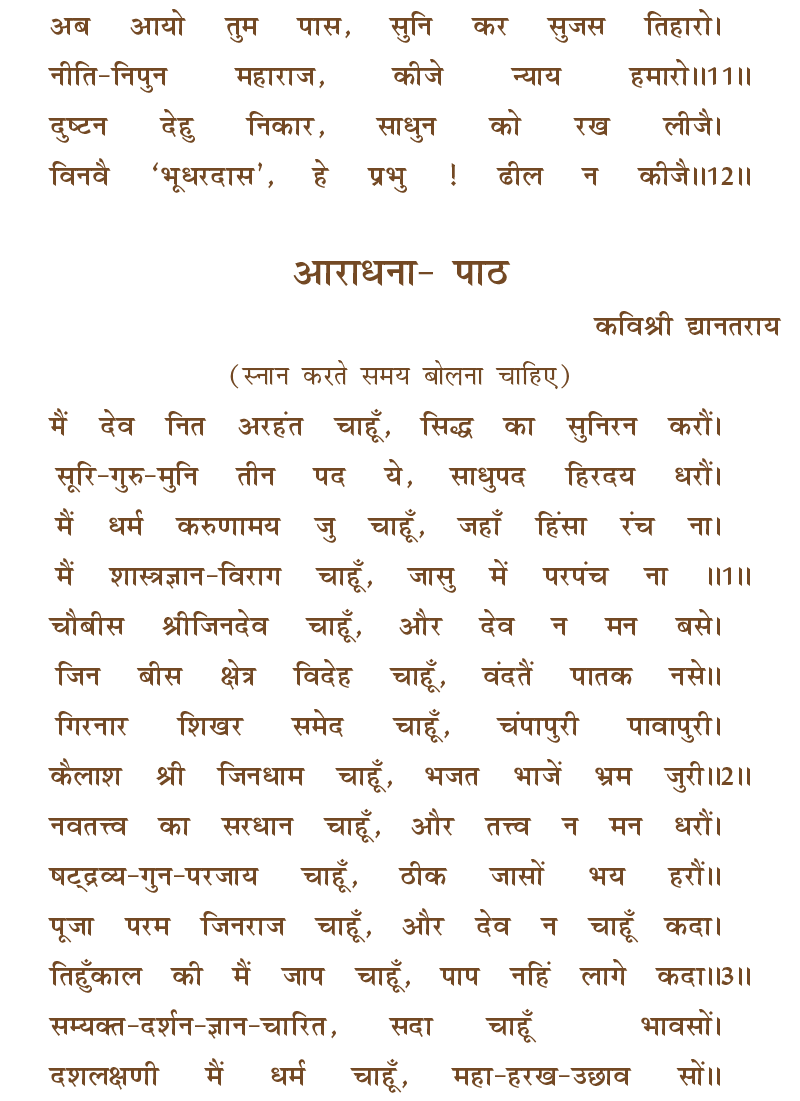 अब आयो तुम पास, सुनि कर सुजस तिहारो।
नीति-निपुन महाराज, कीजे न्याय हमारो॥11॥
दुष्टन देहु निकार, साधुन को रख लीजै।
विनवै ‘भूधरदास’, हे प्रभु ! ढील न कीजै॥12॥
आराधना- पाठ
कविश्री द्यानतराय
(स्नान करते समय बोलना चाहिए)
मैं देव नित अरहंत चाहूँ, सिद्ध का सुनिरन करौं।
सूरि-गुरु-मुनि तीन पद ये, साधुपद हिरदय धरौं।
मैं धर्म करुणामय जु चाहूँ, जहाँ हिंसा रंच ना।
मैं शास्त्रज्ञान-विराग चाहूँ, जासु में परपंच ना ॥1॥
चौबीस श्रीजिनदेव चाहूँ, और देव न मन बसे।
जिन बीस क्षेत्र विदेह चाहूँ, वंदतैं पातक नसे॥
गिरनार शिखर समेद चाहूँ, चंपापुरी पावापुरी।
कैलाश श्री जिनधाम चाहूँ, भजत भाजें भ्रम जुरी॥2॥
नवतत्त्व का सरधान चाहूँ, और तत्त्व न मन धरौं।
षट्द्रव्य-गुन-परजाय चाहूँ, ठीक जासों भय हरौं॥
पूजा परम जिनराज चाहूँ, और देव न चाहूँ कदा।
तिहुँकाल की मैं जाप चाहूँ, पाप नहिं लागे कदा॥3॥
सम्यक्त-दर्शन-ज्ञान-चारित, सदा चाहूँ भावसों।
दशलक्षणी मैं धर्म चाहूँ, महा-हरख-उछाव सों॥